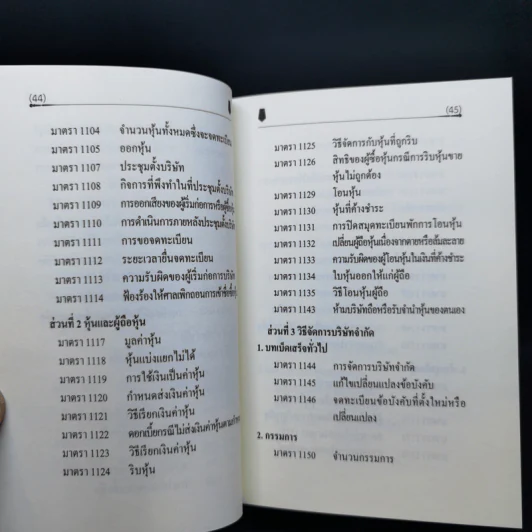 (44)
มาตรา 1104 จำนวนหุ้นทั้งหมดซึ่งจะจดทะเบียน
มาตรา 1105 ออกหุ้น
มาตรา 1107 ประชุมตั้งบริษัท
มาตรา 1108 กิจการที่พึงทำในที่ประชุมตั้งบริษัท
มาตรา 1109 การออกเสียงของผู้เริ่มก่อการหรือผู้
มาตรา 1110 การดำเนินการภายหลังประชุมตั้งบริษัท
มาตรา 1111 การขอจดทะเบียน
มาตรา 1112 ระยะเวลายื่นจดทะเบียน
มาตรา 1113 ความรับผิดของผู้เริ่มก่อการบริษัท
มาตรา 1114 ฟ้องร้องให้ศาลเพิกถอนการเข้าชื่อซื้อ
ส่วนที่ 2 หุ้นและผู้ถือหุ้น
มาตรา 1117 มูลค่าหุ้น
มาตรา 1118 หุ้นแบ่งแยกไม่ได้
มาตรา 1119 การใช้เงินเป็นค่าหุ้น
มาตรา 1120 กำหนดส่งเงินค่าหุ้น
มาตรา 1121 วิธีเรียกเงินค่าหุ้น
มาตรา 1122 ดอกเบี้ยกรณีไม่ส่งเงินค่าหุ้นตาม
มาตรา 1123 วิธีเรียกเงินค่าหุ้น
มาตรา 1124 ริบหุ้น
(45)
มาตรา 1125 วิธีจัดการกับหุ้นที่ถูกริบ
มาตรา 1126 สิทธิของผู้ซื้อหุ้นกรณีการริบหุ้นขาย
หุ้นไม่ถูกต้อง
มาตรา 1129 โอนหุ้น
มาตรา 1130 หุ้นที่ค้างชำระ
มาตรา 1131 การปิดสมุดทะเบียนพักการโอนหุ้น
มาตรา 1132 เปลี่ยนผู้ถือหุ้นเนื่องจากตายหรือล้มละลาย
มาตรา 1133 ความรับผิดของผู้โอนหุ้นในเงินที่ค้างชำระ
มาตรา 1134 ใบหุ้นออกให้แก่ผู้ถือ
มาตรา 1135 วิธีโอนหุ้นผู้ถือ
มาตรา 1143 ห้ามบริษัทถือหรือรับจำนำหุ้นของตนเอง
ส่วนที่ 3 วิธีจัดการบริษัทจำกัด
1. บทเบ็ดเสร็จทั่วไป
มาตรา 1144 การจัดการบริษัทจำกัด
มาตรา 1145 แก้ไขเปลี่ยนแปลงข้อบังคับ
มาตรา 1146 จดทะเบียนข้อบังคับที่ตั้งใหม่หรือ
เปลี่ยนแปลง
2. กรรมการ
มาตรา 1150 จำนวนกรรมการ